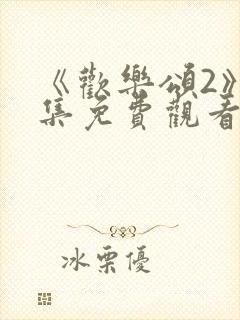 《歡樂頌2》
集免費觀看
冰栗優